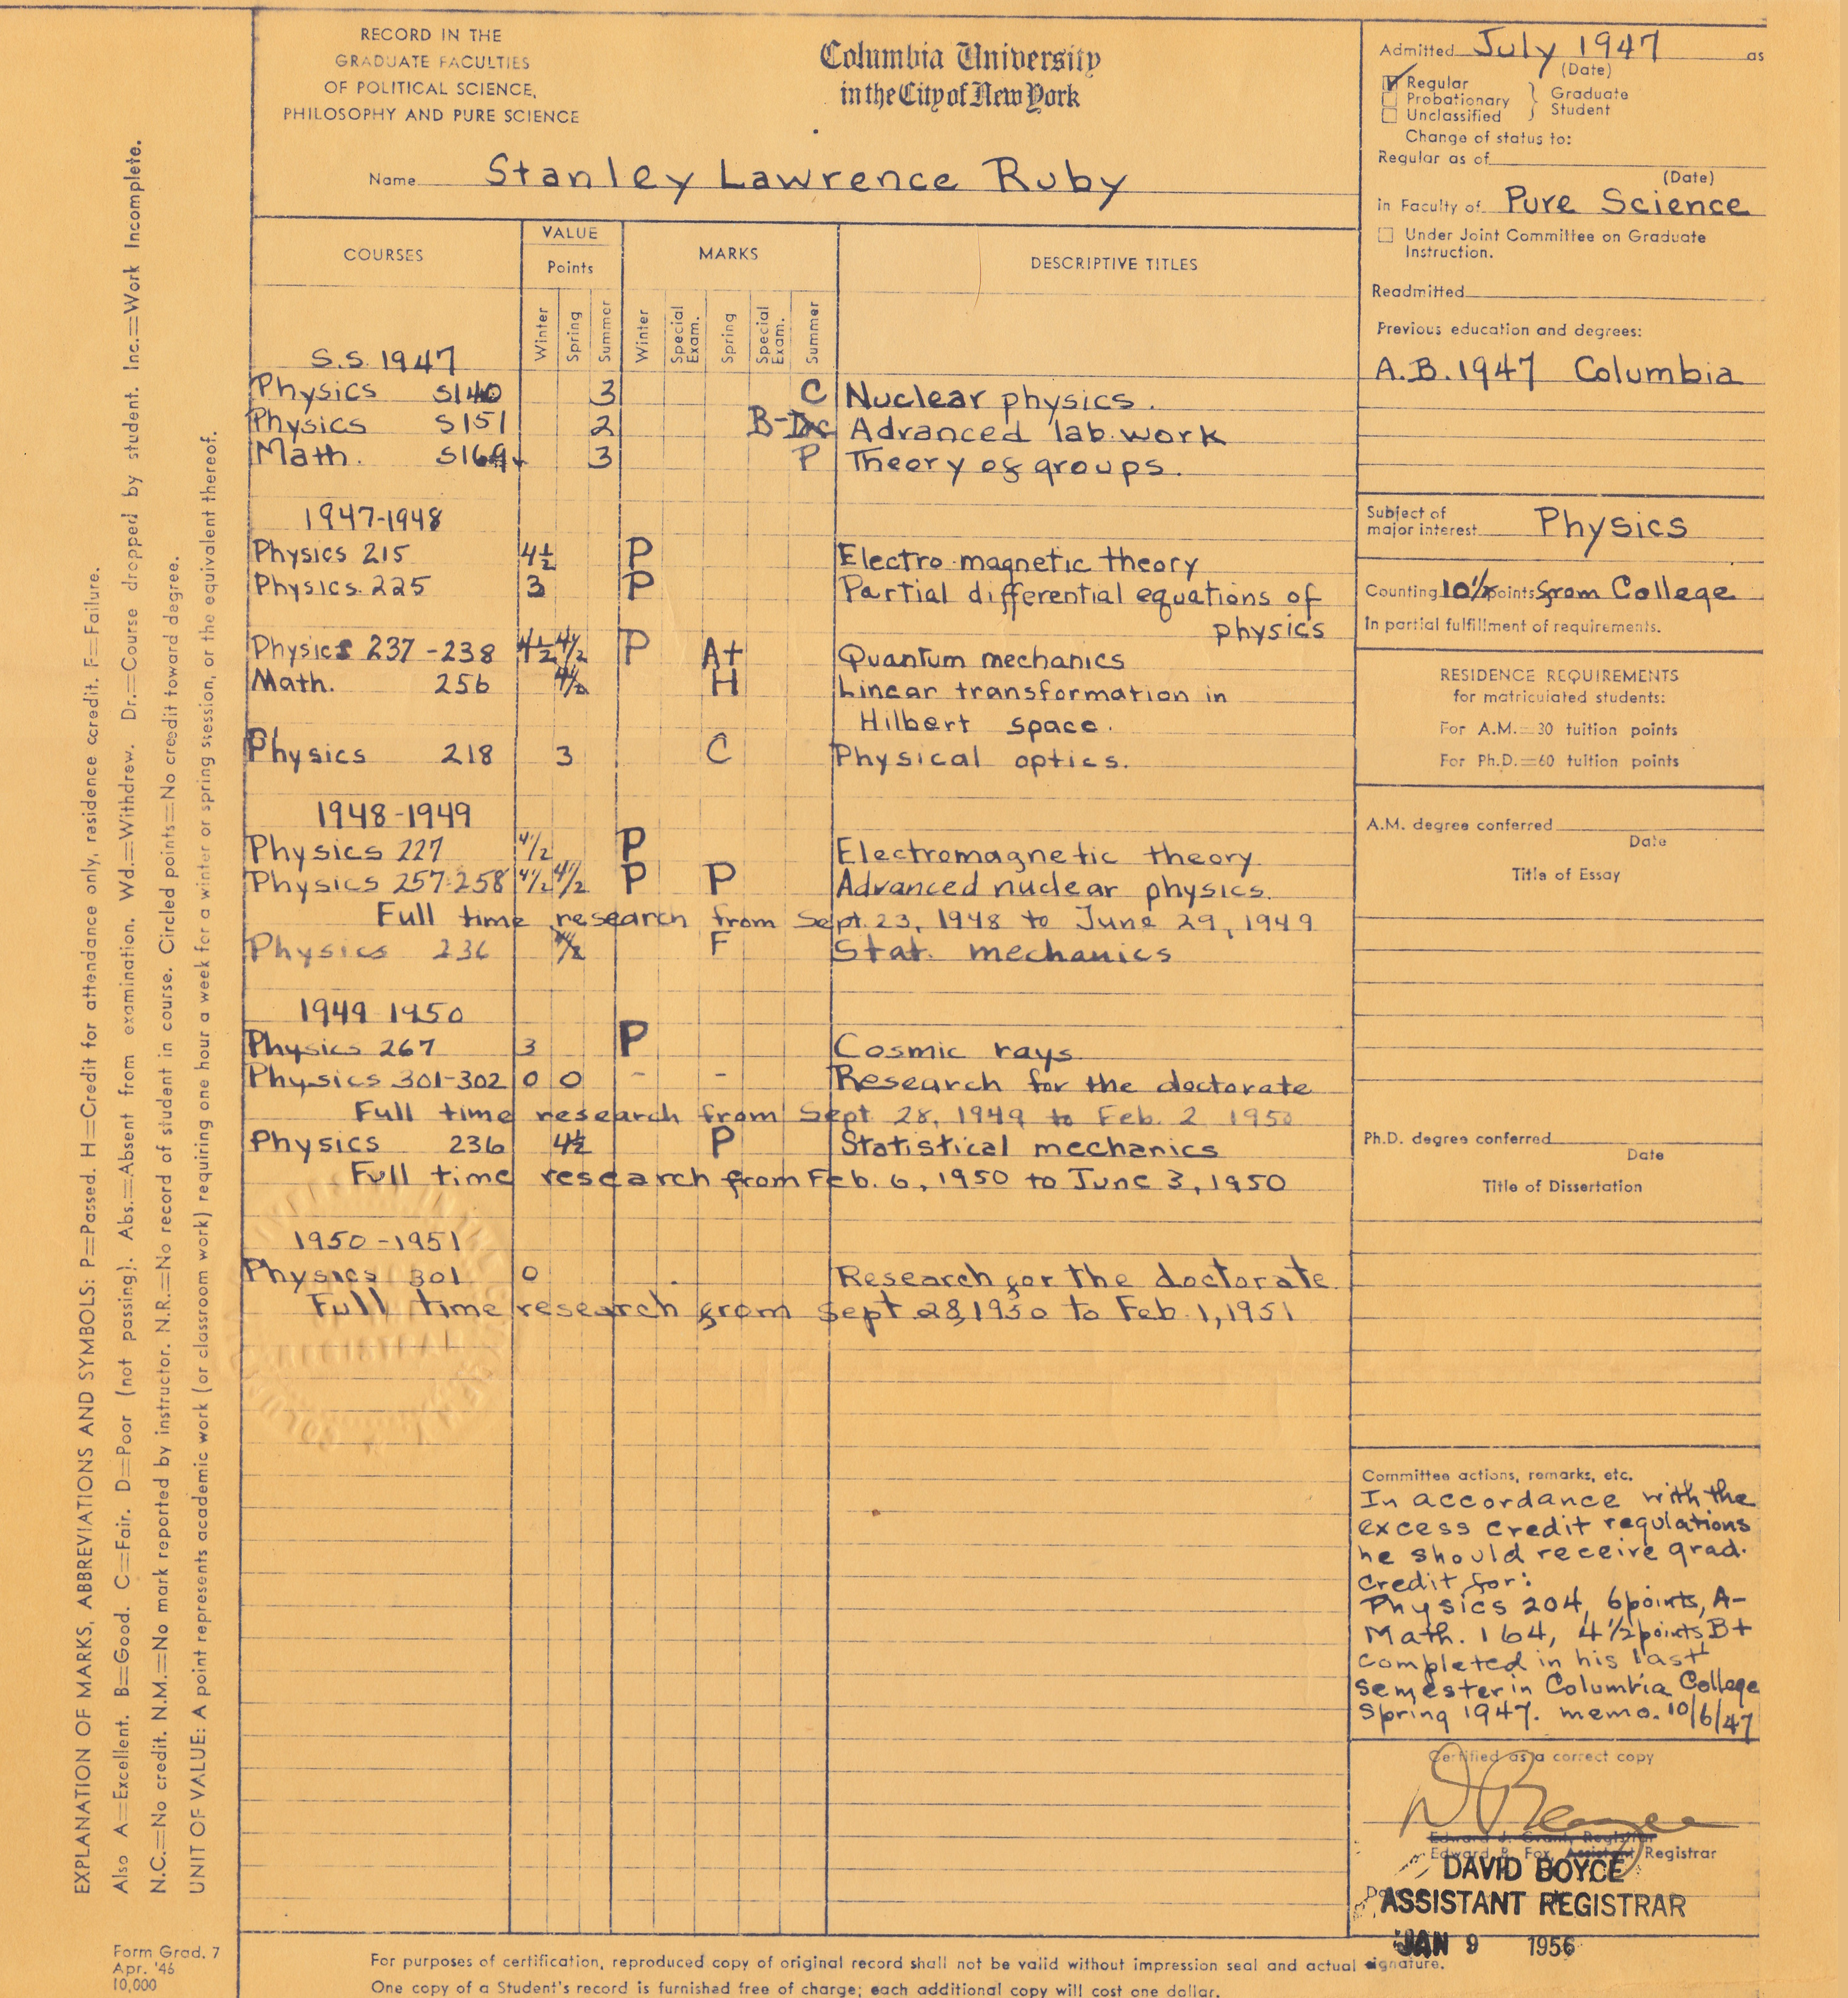 RECORD IN THE
GRADUATE FACULTIES
OF POLITICAL SCIENCE,
PHILOSOPHY AND PURE SCIENCE
Columbia University
in the City of New York
Name Stanley Lawrence Ruby
COURSES VALUE MARKS DESCRIPTIVE TITLES
Points
Winter Spring Summer Winter Special Exam. Spring Special Exam. Summer
S.S. 1947
Physics S140 3 C Nuclear physics.
Physics S151 2 B- Advanced lab. work
Math. S169 3 P Theory of groups.
1947-1948
Physics 215 4½ P Electro magnetic theory
Physics. 225 3 P Partial differential equations of
physics
Physics 237-238 4½ 4½ P A+ Quantum mechanics
Math. 256 4½ H Linear transformation in
Hilbert space.
Physics 218 3 C Physical optics.
1948-1949
Physics 227 4½ P Electromagnetic theory
Physics 257-258 4½ 4½ P P Advanced nuclear physics.
Full time research from Sept. 23, 1948 to June 29, 1949
Physics 236 4½ F Stat. mechanics
1949 1950
Physics 267 3 P Cosmic rays
Physics 301-302 0 0 - - Research for the doctorate
Full time research from Sept. 28, 1949 to Feb. 2 1950
Physics 236 4½ P Statistical mechanics
Full time research from Feb. 6, 1950 to June 3, 1950
1950-1951
Physics 301 0 Research for the doctorate
Full time research from Sept 28, 1950 to Feb. 1, 1951
Admitted July 1947 as
(Date)
Regular
Probationary
Unclassified
Graduate
Student
Change of status to:
Regular as of
(Date)
in Faculty of Pure Science
Under Joint Committee on Graduate
Instruction.
Readmitted
Previous education and degrees:
A.B. 1947 Columbia
Subject of
major interest Physics
Counting 10½ points from College
In partial fulfillment of requirements.
RESIDENCE REQUIREMENTS
for matriculated students:
For A.M.=30 tuition points
For Ph.D.=60 tuition points
A.M. degree conferred
Date
Title of Essay
Ph.D. degree conferred
Date
Title of Dissertation
Committee actions, remarks, etc.
In accordance with the
excess credit regulations
he should receive grad.
credit for:
Physics 204, 6 points, A-
Math. 164, 4½ points B+
completed in his last
semester in Columbia College
Spring 1947. memo. 10/6/47
Certified as a correct copy
Edward J. Grant, Registrar
Edward B. Fox, Assistant Registrar
DAVID BOYCE
ASSISTANT REGISTRAR
JAN 9 1956
EXPLANATION OF MARKS, ABBREVIATIONS AND SYMBOLS: P=Passed. H=Credit for attendance only, residence credit. F=Failure.
Also A=Excellent. B=Good. C=Fair. D=Poor (not passing). Abs.=Absent from examination. Wd.=Withdrew. Dr.=Course dropped by student. Inc.=Work Incomplete.
N.C.=No credit. N.M.=No mark reported by instructor. N.R.=No record of student in course. Circled points=No credit toward degree.
UNIT OF VALUE: A point represents academic work (or classroom work) requiring one hour a week for a winter or spring session, or the equivalent thereof.
Form Grad. 7
Apr. '46
10,000
For purposes of certification, reproduced copy of original record shall not be valid without impression seal and actual signature.
One copy of a Student's record is furnished free of charge; each additional copy will cost one dollar.